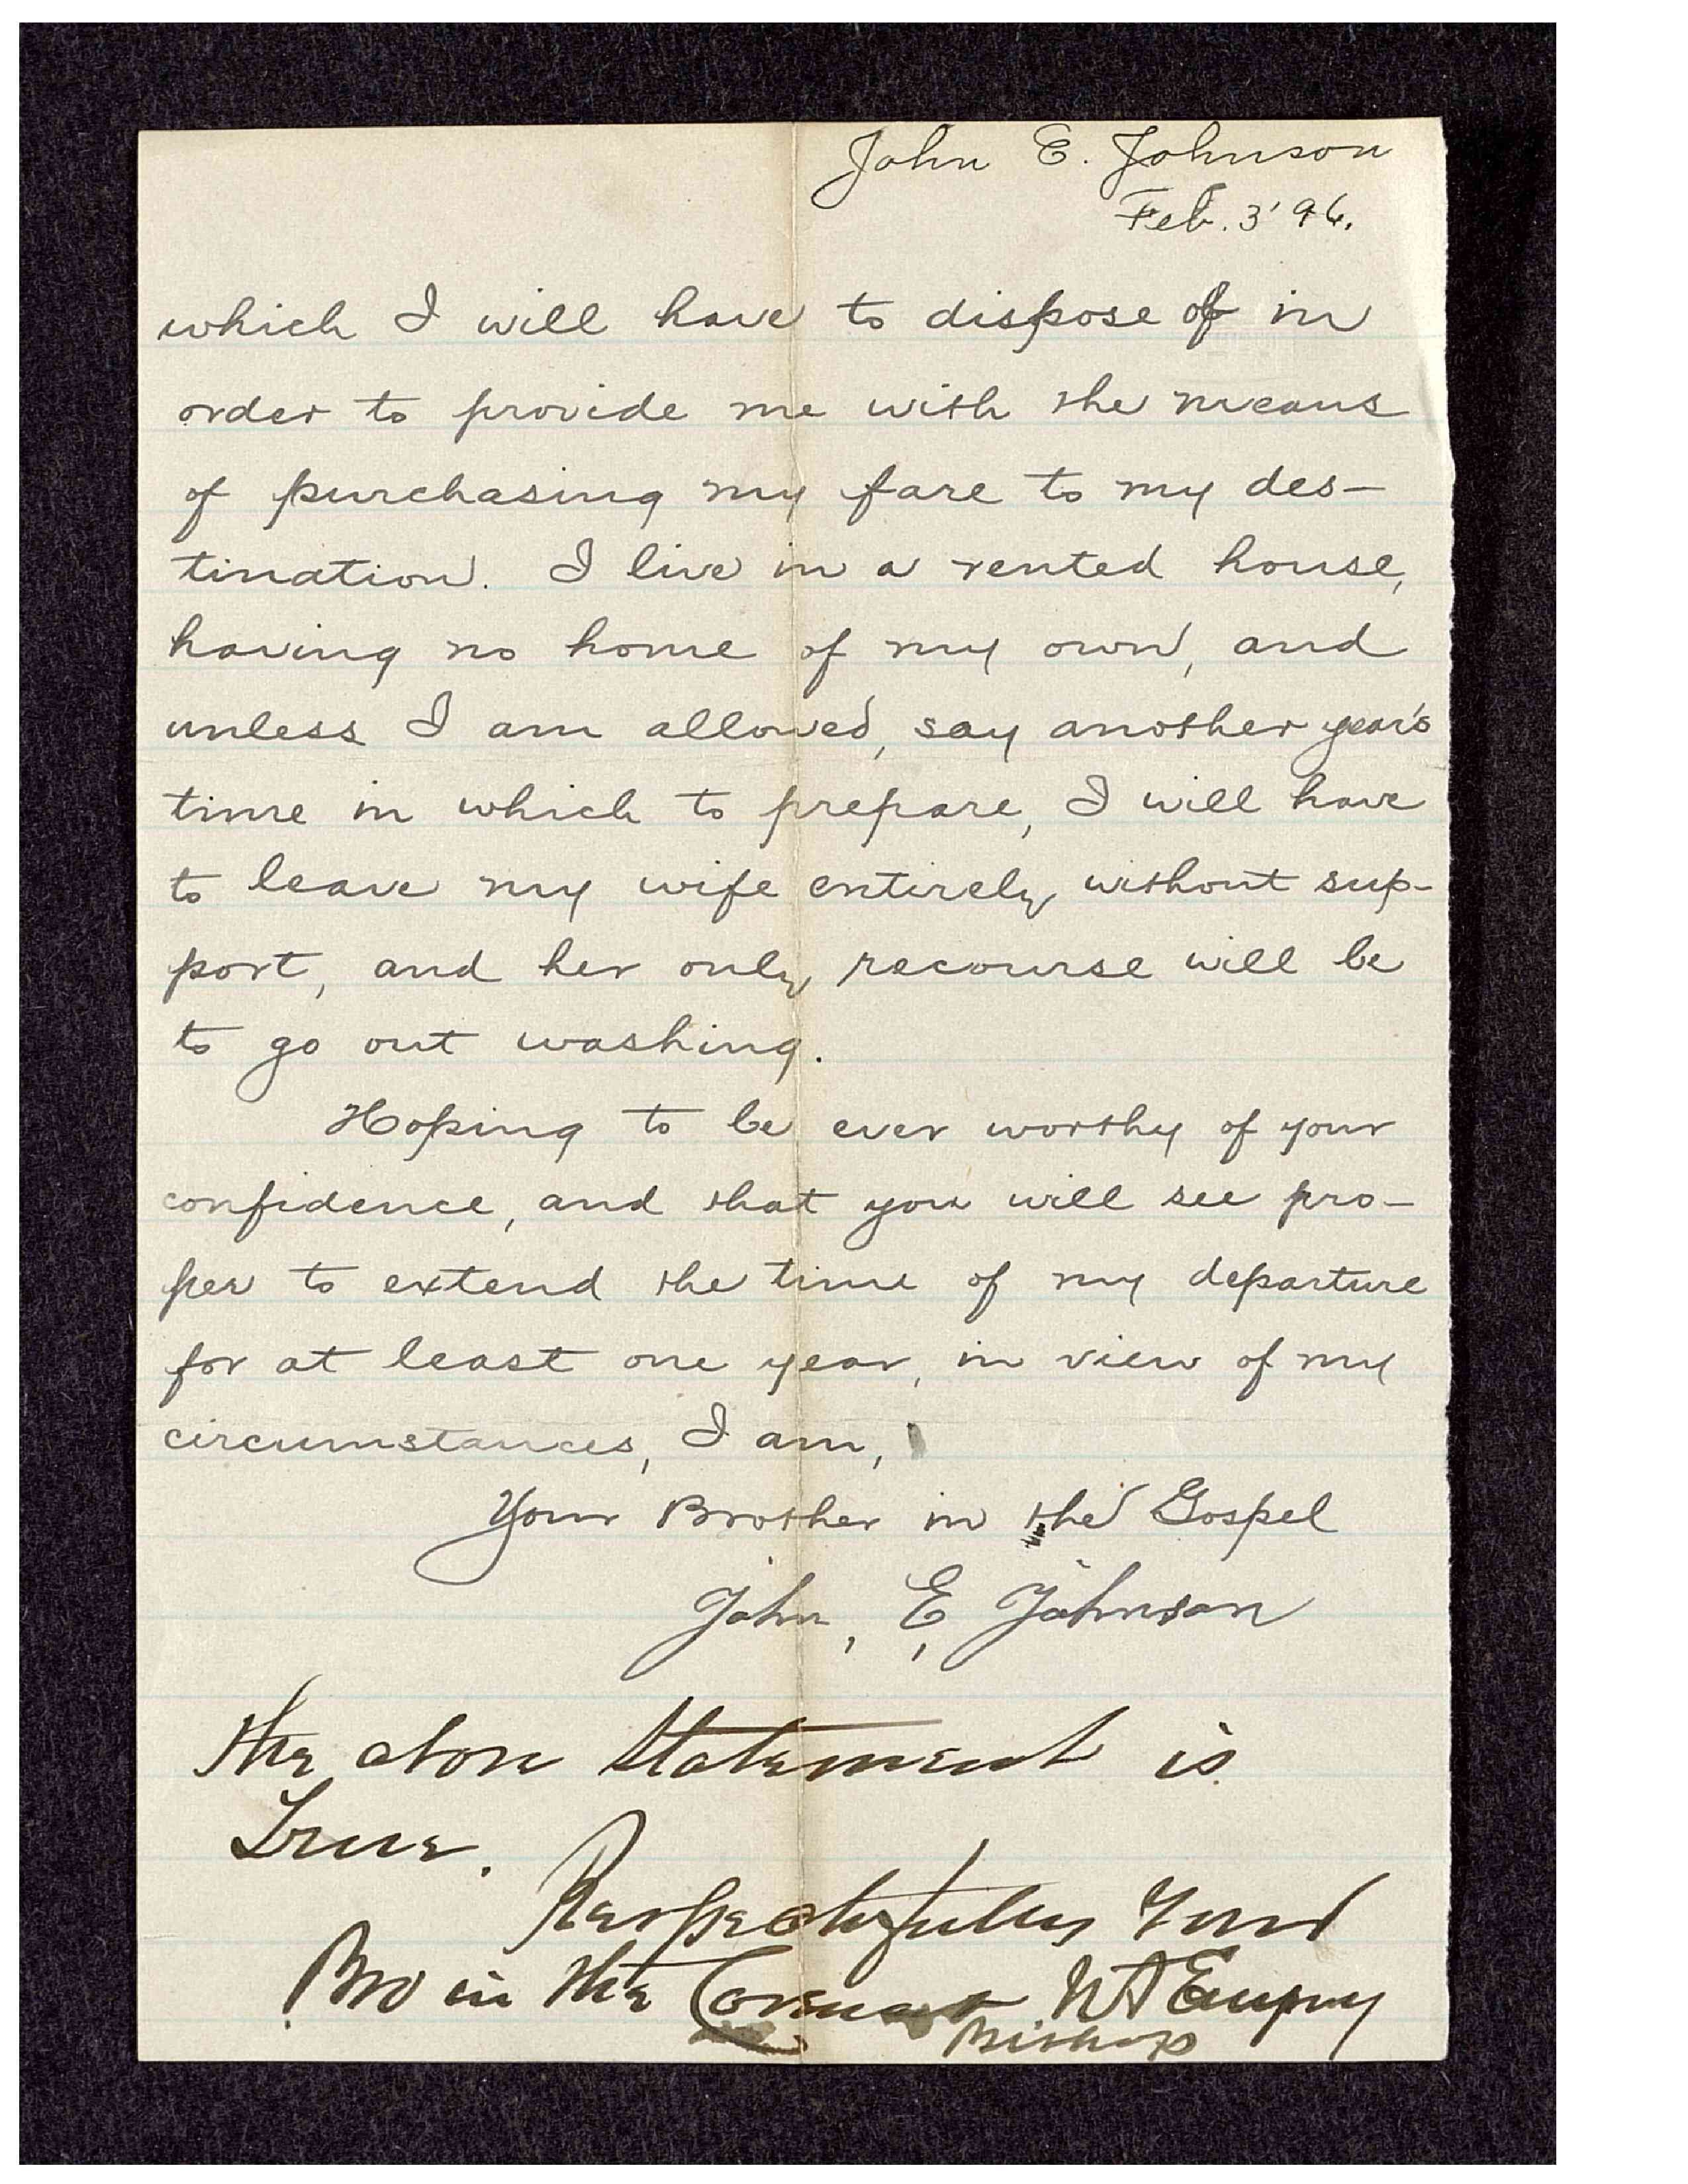 John E. Johnson
Feb. 3' 96.
which I will have to dispose of in
order to provide me with the means
of purchasing my fare to my des-
tination. I live in a rented house,
having no home of my own, and
unless I am allowed, say another year's
time in which to prepare, I will have
to leave my wife entirely without sup-
port, and her only recourse will be
to go out washing.
Hoping to be ever worthy of your
confidence, and that you will see pro-
per to extend the time of my departure
for at least one year, in view of my
circumstances, I am,
Your Brother in the Gospel
John, E, Johnson
the above Statement is
True.
Respectfully Your
Bro in the Covenant W A Empey
Bishop